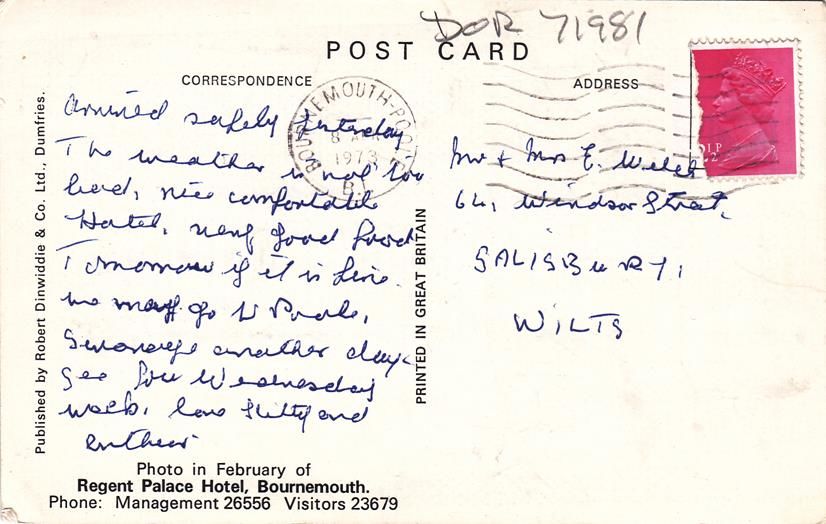 DOR 71981
POST CARD
CORRESPONDENCE
ADDRESS
BOURNEMOUTH-POOLE
8
1973
B
½P
arrived safely yesterday
The weather is not too
bad, nice comfortable
Hotel, very good food
Tomorrow if it is fine
we may go to Poole,
Swanage another day.
See you Wednesday
week, love Kitty and
Mr + Mrs E. Welch
64, Windsor Street,
SALISBURY,
WILTS
Published by Robert Dinwiddie & Co. Ltd., Dumfries.
PRINTED IN GREAT BRITAIN
Photo in February of
Regent Palace Hotel, Bournemouth.
Phone: Management 26556 Visitors 23679